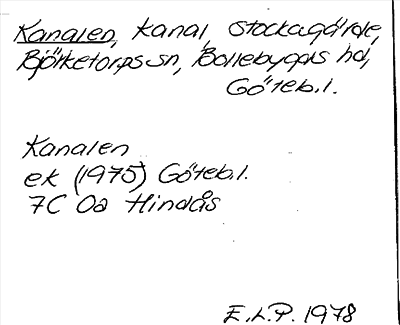 Kanalen, kanal, Stockagärde,
Björketorps sn, Bollebygds hd,
Göteb.l.
Kanalen
ek (1975) Göteb.l.
7C 0a Hindås
E.L.P. 1978